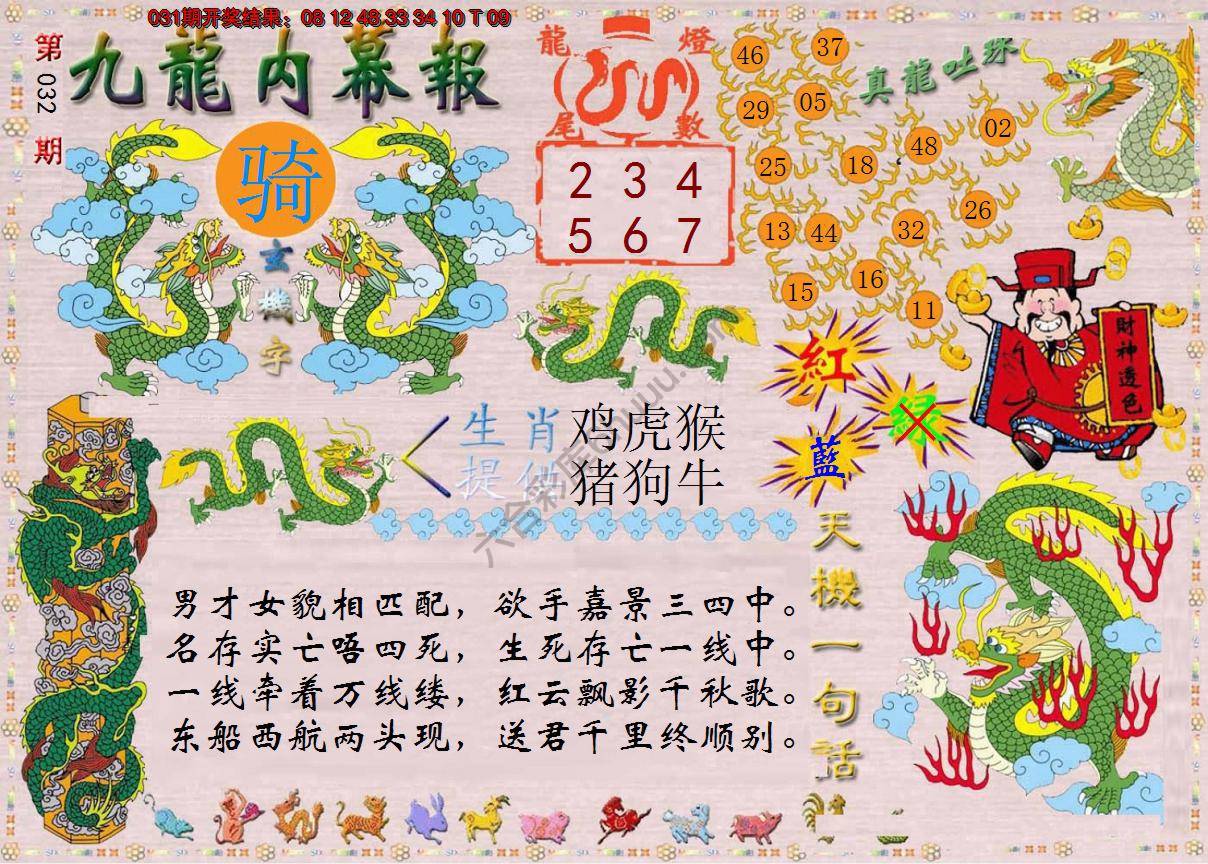 031期开奖结果：08 12 48 33 34 10 T 09
第032期
九龍内幕報
骑
玄機字
龍燈
尾數
2 3 4
5 6 7
真龍吐珠
46
37
29
05
25
18
48
02
13
44
32
26
15
16
11
財神透色
紅
绿
藍
生肖 鸡虎猴
提供 猪狗牛
天機一句話
男才女貌相匹配，欲手嘉景三四中。
名存实亡唔四死，生死存亡一线中。
一线牵着万线缕，红云飘影千秋歌。
东船西航两头现，送君千里终顺别。